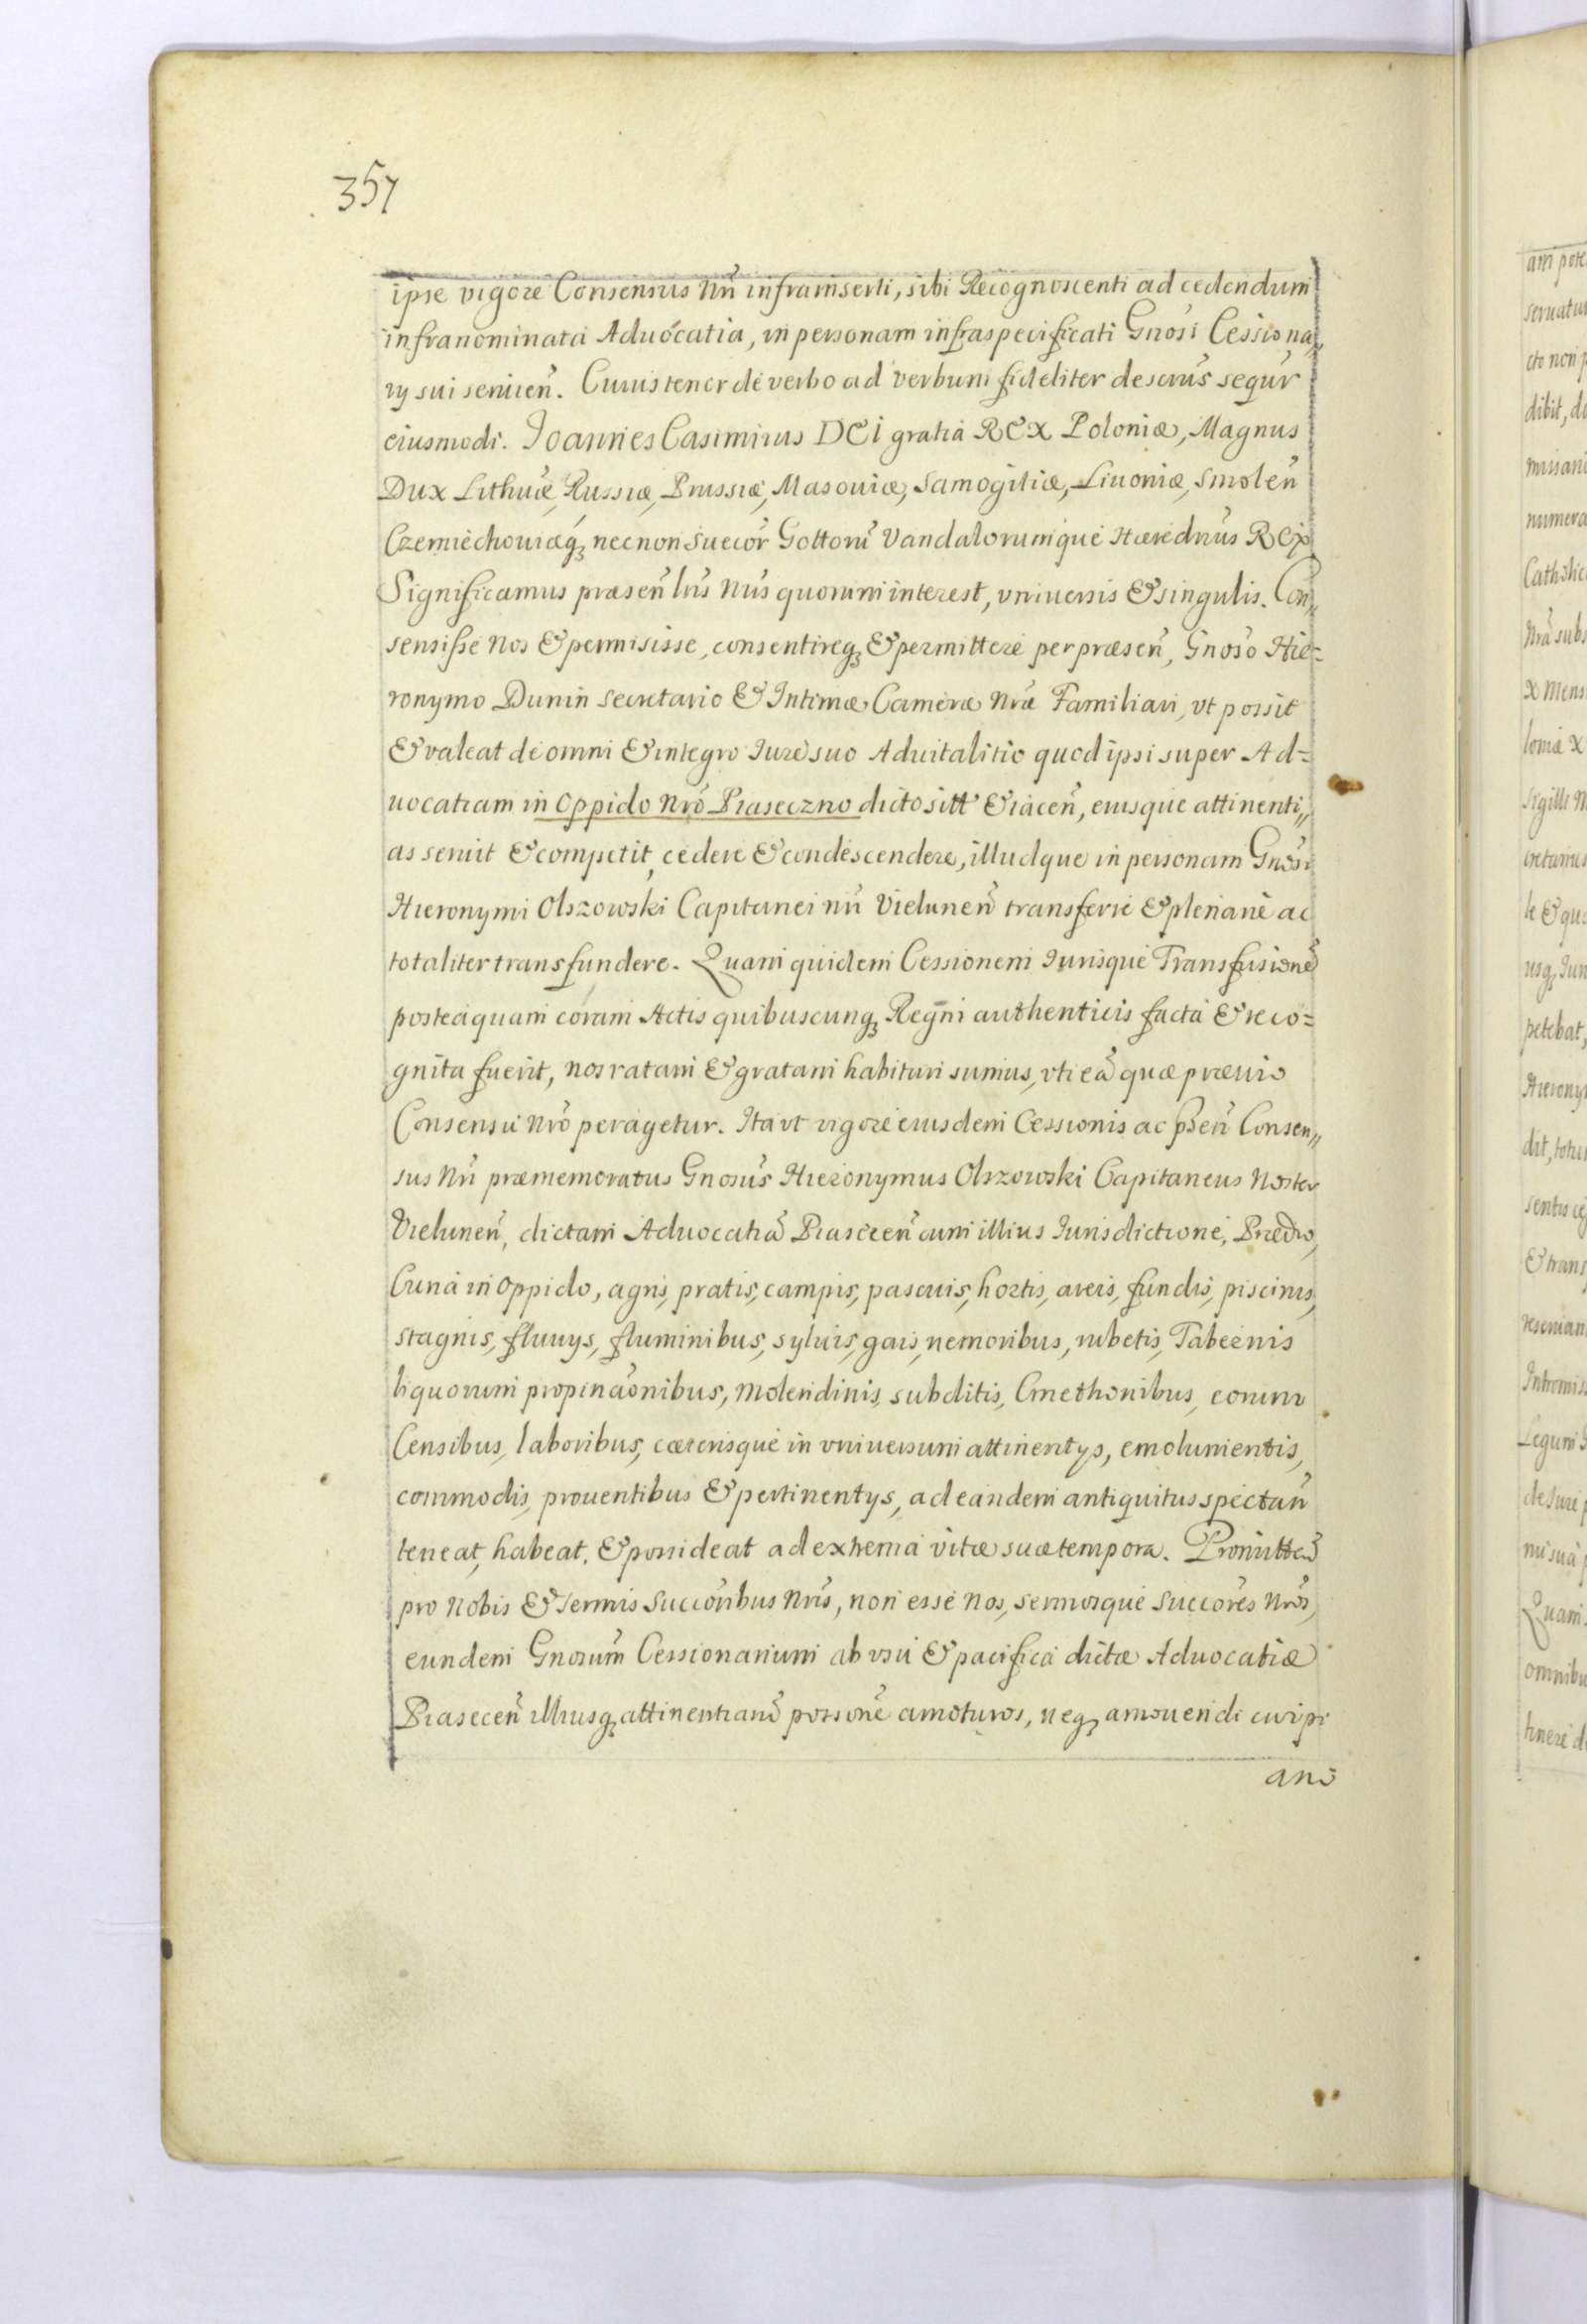 357
ipse vigore Consensus Nri infrainserti, sibi Recognoscenti ad cedendum
infranominata Aduocatia, in personam infraspecificati Gnosi Cessiona„
rij sui seruien. Cuius tenor de verbo ad verbum fideliter descrus sequr
eiusmodi. Joannes Casimirus DEI gratia REX Poloniæ, Magnus
Dux Lithuæ, Russiæ, Prussiæ, Masouiæ, Samogitiæ, Liuoniæ, Smolen
Czerniechouiæq; necnon Suecor Gottoru Vandalorumque Hæredrius REX
Significamus præsen lris Nris quorum interest, vniuersis & singulis. Con„
sensisse Nos & permisisse, consentireq; & permittere per præsen, Gnoso Hie=
ronymo Dunin Secretario & Intimæ Cameræ Nræ Familiari, vt possit
& valeat de omni & integro Jure suo Aduitalitio quod ipsi super Ad=
uocatiam in Oppido Nro Piaseczno dicto sitt & iacen, eiusque attinenti„
as seruit & competit, cedere & condescendere, illudque in personam Gnosi
Hieronymi Olszowski Capitanei nri Vielunen transferre & plenarie ac
totaliter transfundere. Quam quidem Cessionem Jurisque Transfusione
posteaquam coram Actis quibuscunq; Regni authenticis facta & reco=
gnita fuerit, nos ratam & gratam habituri sumus, vti ea quæ præuio
Consensu Nro peragetur. Ita vt vigore eiusdem Cessionis ac psen Consen„
sus Nri præmemoratus Gnosus Hieronymus Olszowski Capitaneus Noster
Vielunen, dictam Aduocatia Piasecen cum illius Jurisdictione, Prædio,
Curia in Oppido, agris, pratis, campis, pascuis, hortis, areis, fundis, piscinis,
stagnis, fluuijs, fluminibus, syluis, gais, nemoribus, rubetis, Tabernis
liquorum propinaonibus, Molendinis, subditis, Cmethonibus, eorum
Censibus, laboribus, cæterisque in vniuersum attinentijs, emolumentis,
commodis, prouentibus & pertinentijs, ad eandem antiquitus spectan
teneat, habeat, & possideat ad extrema vitæ suæ tempora. Promitten
pro Nobis & Sermis Succoribus Nris, non esse Nos, sermosque Succores Nros,
eundem Gnosum Cessionarium ab vsu & pacifica dictæ Aduocatiæ
Piasecen illiusq; attinentiaru possone amoturos, neq; amouendi cuipi
am